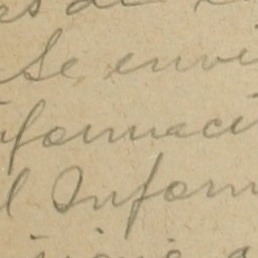 es de
Se envi
formaci
l Inform